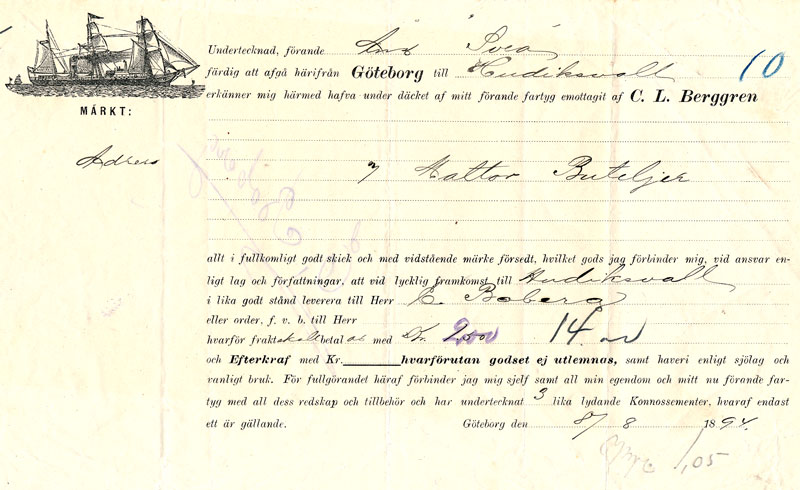 Undertecknad, förande Ans Svea
färdig att afgå härifrån Göteborg till Hudiksvall
10
erkänner mig härmed hafva under däcket af mitt förande fartyg emottagit af C. L. Berggren
MÄRKT:
Adress
7 Mattor Buteljer
allt i fullkomligt godt skick och med vidstående märke försedt, hvilket gods jag förbinder mig, vid ansvar en-
ligt lag och författningar, att vid lycklig framkomst till Hudiksvall
i lika godt stånd leverera till Herr C. Boberg
eller order, f. v. b. till Herr
hvarför frakt skall betalas med Kr. 2,00 14
och Efterkraf med Kr. hvarförutan godset ej utlemnas, samt haveri enligt sjölag och
vanligt bruk. För fullgörandet häraf förbinder jag mig sjelf samt all min egendom och mitt nu förande far-
tyg med all dess redskap och tillbehör och har undertecknat 3 lika lydande Konnossementer, hvaraf endast
ett är gällande. Göteborg den 8/8 1894.
1,05